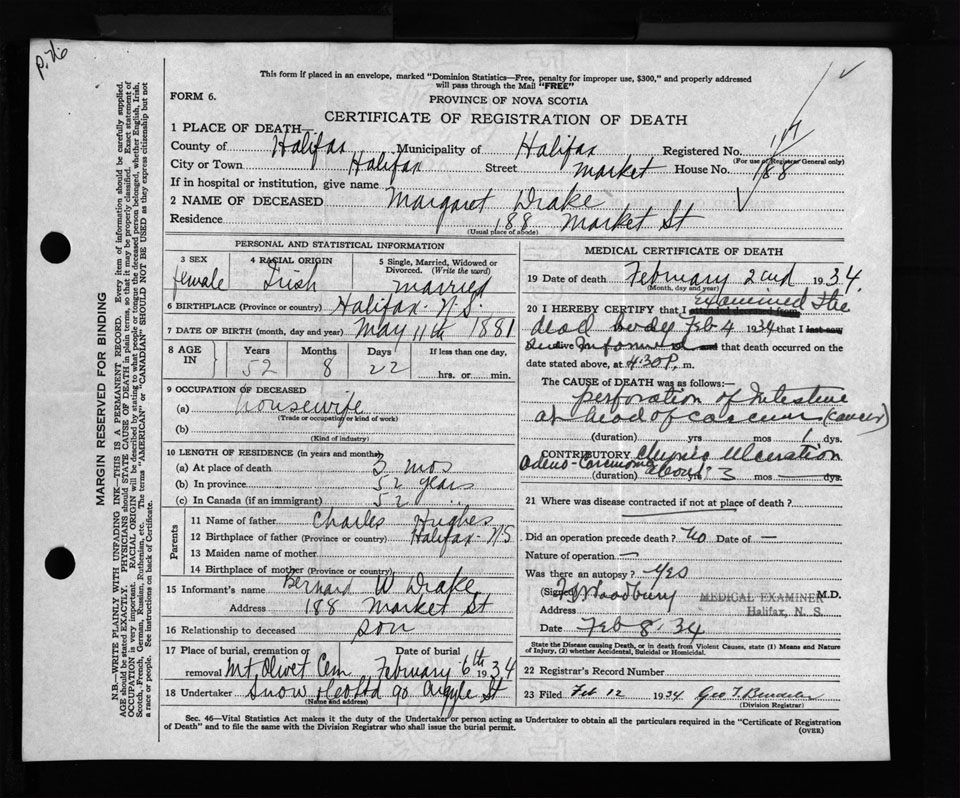 p. 76
This form if placed in an envelope, marked "Dominion Statistics—Free, penalty for improper use, $300," and properly addressed
will pass through the Mail "FREE"
FORM 6.
PROVINCE OF NOVA SCOTIA
CERTIFICATE OF REGISTRATION OF DEATH
1 PLACE OF DEATH—
County of Halifax Municipality of Halifax Registered No.
(For use of Registrar General only)
City or Town Halifax Street Market House No. 188
If in hospital or institution, give name
2 NAME OF DECEASED Margaret Drake
Residence 188 Market St
(Usual place of abode)
PERSONAL AND STATISTICAL INFORMATION
3 SEX 4 RACIAL ORIGIN 5 Single, Married, Widowed or
Divorced. (Write the word)
female Irish married
6 BIRTHPLACE (Province or country) Halifax N.S.
7 DATE OF BIRTH (month, day and year) May 11th 1881
8 AGE IN Years Months Days If less than one day,
52 8 22 hrs. or min.
9 OCCUPATION OF DECEASED
(a) housewife
(Trade or occupation or kind of work)
(b)
(Kind of industry)
10 LENGTH OF RESIDENCE (in years and months)
(a) At place of death 3 mos
(b) In province 52 years
(c) In Canada (if an immigrant) 52 "
Parents
11 Name of father Charles Hughes
12 Birthplace of father (Province or country) Halifax N.S
13 Maiden name of mother
14 Birthplace of mother (Province or country)
15 Informant's name Bernard W Drake
Address 188 Market St
16 Relationship to deceased son
17 Place of burial, cremation or Date of burial
removal Mt. Olivet Cem February 6th 1934
18 Undertaker Snow & Co Ltd 90 Argyle St
(Name and address)
MEDICAL CERTIFICATE OF DEATH
19 Date of death February 2nd 1934.
(Month, day and year)
examined the
20 I HEREBY CERTIFY that I attended deceased from
dead body Feb 4 1934 that I last saw
alive Informed and that death occurred on the
date stated above, at 4:30 P. m.
The CAUSE of DEATH was as follows:—
perforation of Intestine
at head of caecum (cancer)
(duration) yrs mos 1 dys.
CONTRIBUTORY Chronic Ulceration
Adeno-Carcinoma about
(duration) yrs 3 mos dys.
21 Where was disease contracted if not at place of death?
Did an operation precede death? No Date of —
Nature of operation —
Was there an autopsy? Yes
(Signed) Woodbury MEDICAL EXAMINER M.D.
Address Halifax, N. S.
Date Feb 8. 34
State the Disease causing Death, or in death from Violent Causes, state (1) Means and Nature
of Injury, (2) whether Accidental, Suicidal or Homicidal.
22 Registrar's Record Number
23 Filed Feb 12 1934 Geo T.
(Division Registrar)
Sec. 46—Vital Statistics Act makes it the duty of the Undertaker or person acting as Undertaker to obtain all the particulars required in the "Certificate of Registration
of Death" and to file the same with the Division Registrar who shall issue the burial permit.
(OVER)
MARGIN RESERVED FOR BINDING
N.B.—WRITE PLAINLY WITH UNFADING INK—THIS IS A PERMANENT RECORD. Every item of information should be carefully supplied.
AGE should be stated EXACTLY. PHYSICIANS should STATE CAUSE OF DEATH in plain terms, so that it may be properly classified. Exact statement of
OCCUPATION is very important. RACIAL ORIGIN will be described by stating to what people or tongue the deceased person belonged, whether English, Irish,
Scotch, French, German, Russian, Ruthenian, etc. The terms "AMERICAN" or "CANADIAN" SHOULD NOT BE USED as they express citizenship but not
a race or people. See instructions on back of Certificate.